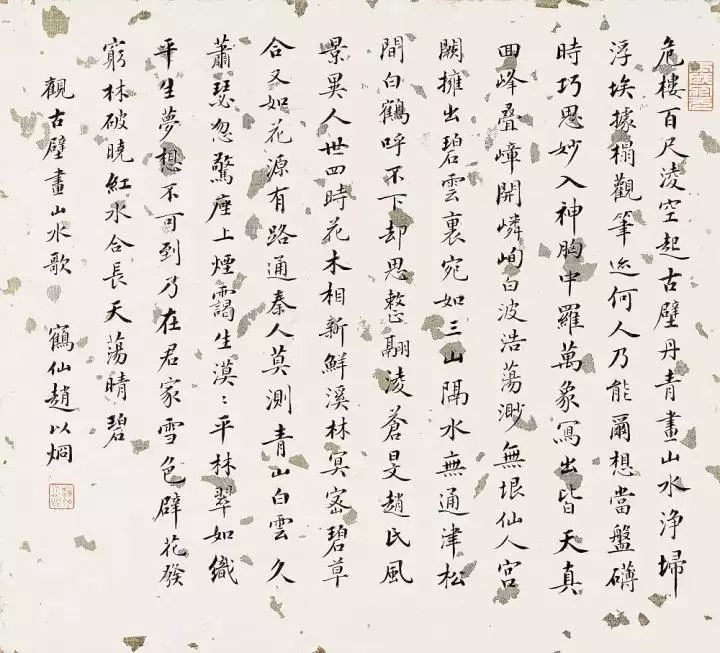 危樓百尺淩空起古壁丹青畫山水浄埽
浮埃據榻觀筆迹何人乃能爾想當盤礴
時巧思妙入神胸中羅萬象寫出皆天真
回峰疊嶂開嶙峋白波浩蕩渺無垠仙人宮
闕擁出碧雲裏宛如三山隔水無通津松
間白鶴呼不下却思整翮淩蒼旻趙氏風
景異人世四時花木相新鮮溪林冥密碧草
合又如花源有路通秦人莫測青山白雲久
蕭瑟忽驚座上煙靄生漠〻平林翠如織
平生夢想不可到乃在君家雪色壁花發
窮林破曉紅水合長天蕩晴碧
觀古壁畫山水歌 鶴仙趙以烱